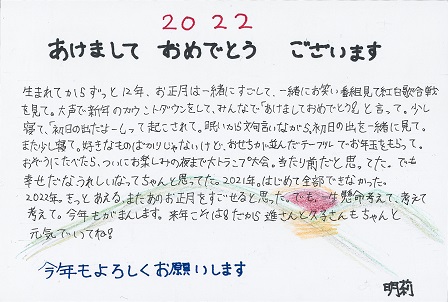 2022
あけまして おめでとう ございます
生まれてからずっと12年、お正月は一緒にすごして、一緒にお笑い番組見て紅白歌合戦
を見て。大声で新年のカウントダウンをして、みんなで「あけましておめでとう!」と言って。少し
寝て、「初日の出だよーしって起こされて。眠いから文句言いながら、初日の出を一緒に見て。
また少し寝て。好きなものばかりじゃないけど、おせちが並んだテーブルでお年玉をもらって。
おぞうにたべたら、ついにお楽しみの夜までトランプ大会。当たり前だと思ってた。でも
幸せだなうれしいなってちゃんと思ってた。2021年。はじめて全部できなかった。
2022年。きっとあえる。またあのお正月をすごせると思った。でも、一生懸命考えて、考えて
考えて。今年もがまんします。来年こそは!だから進さんと久子さんもちゃんと
元気でいてね!
今年もよろしくお願いします
明莉